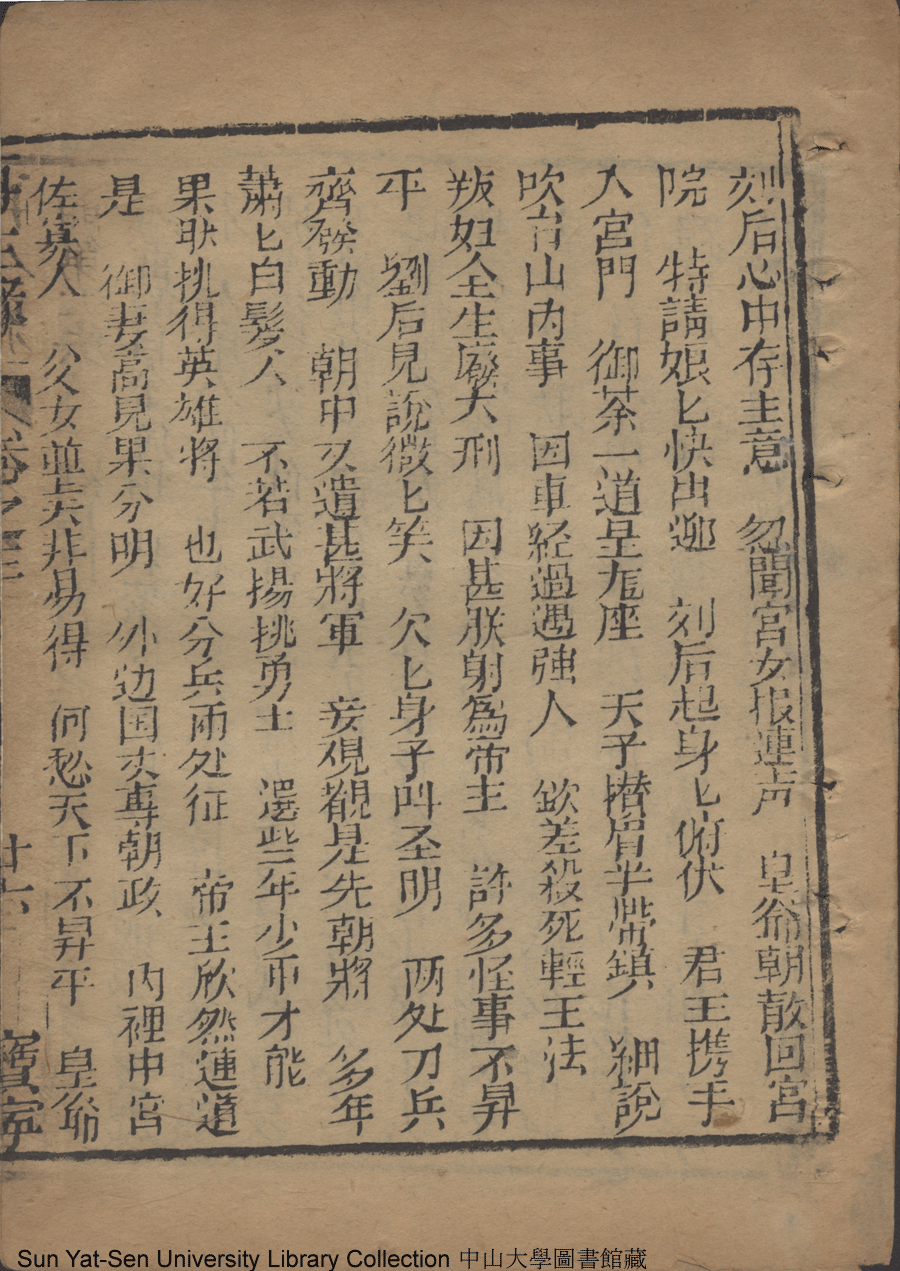 刘后心中存主意　忽聞宮女报連声　皇爺朝散回宮
院　特請娘匕快出迎　刘后起身匕俯伏　君王携手
入宮門　御茶一道呈龙座　天子撍眉半帶鎖　細說
吹台山内事　因車経過遇強人　欲差殺死輕王法
叛妇全生廢大刑　因甚朕躬爲帝主　許多怪事不昇
平　劉后見說微匕笑　欠匕身子叫圣明　两处刀兵
齊發動　朝中又遣甚將軍　妾覌觀是先朝將　多年
蕭匕白髮人　不若武揚挑勇士　選些年少有才能
果肰挑得英雄將　也好分兵兩处征　帝王欣然連道
是　御妻高見果分明　外边国丈專朝政　内裡中宮
佐寡人　父女並美非易得　何愁天下不昇平　皇爺
卷之三
廿六
寶寧
Sun Yat-Sen University Library Collection 中山大學圖書館藏